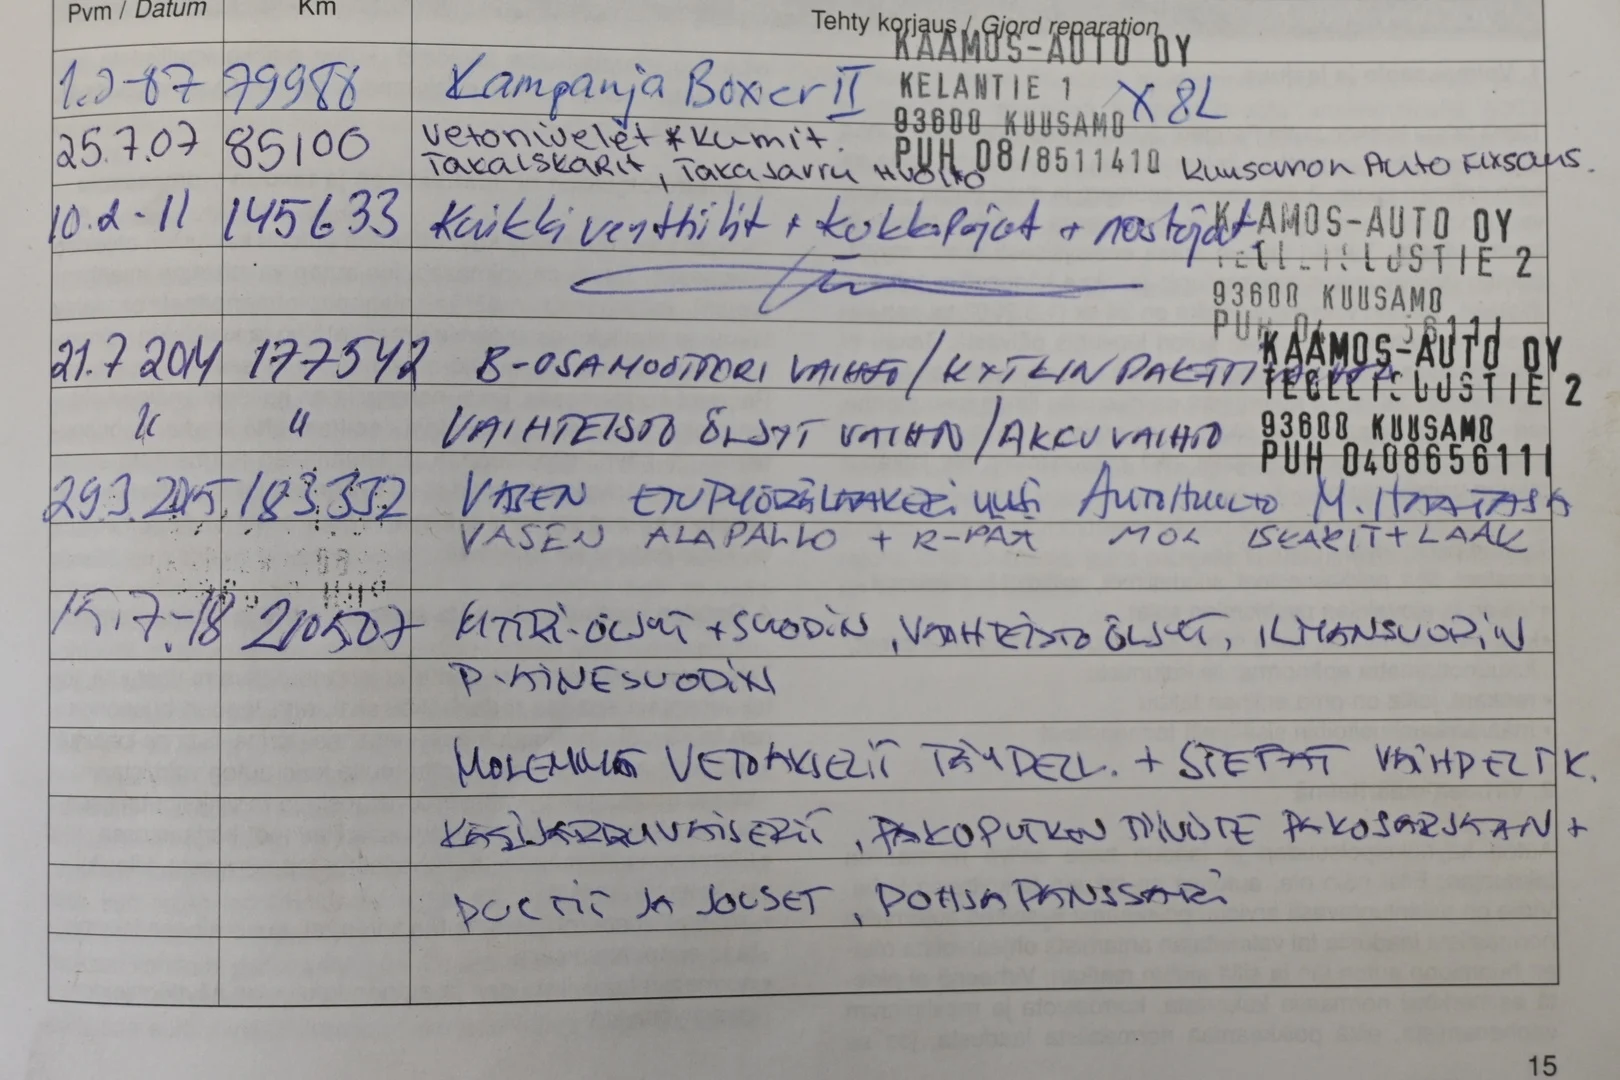 Pvm / Datum Km Tehty korjaus / Gjord reparation
KAAMOS-AUTO OY
1.2-87 79988 Kampanja Boxer II KELANTIE 1 X 8L
93600 KUUSAMO
25.7.07 85100 Vetonivelet * Kumit.
Takaiskarit, Takajarru Huolto PUH 08/8511410 Kuusamon Auto
10.2-11 145633 Kaikki venttiilit + kokkapajat + nostajat KAAMOS-AUTO OY
TEOLLISUUSTIE 2
93600 KUUSAMO
PUH
21.7 2014 177542 B-OSAMOOTTORI VAIHTO / KYTKINPAKETTI KAAMOS-AUTO OY
TEOLLISUUSTIE 2
" " VAIHTEISTO ÖLJYT VAIHN / AKKUVAIHTO 93600 KUUSAMO
PUH 0408656111
29.3.2015 183.332 VASEN ETUPYÖRÄLAAKERI UUSI AUTOHUOLTO M.
VASEN ALAPALLO + R-PÄÄ MOL ISKARIT + LAAK
15.7-18 210507 MTRI-ÖLJYT + SUODIN, VAIHTEISTOÖLJYT, ILMANSUODIN
P-AINESUODIN
MOLEMMAT VETOAKSELIT TÄYDELL. + STEFAT VAIHDELTK.
KÄSIJARRUVAIJERIT, PAKOPUTKEN TIIVISTE PAKOSARJAAN +
PULTIT JA JOUSET, POHJAPANSSARI
15